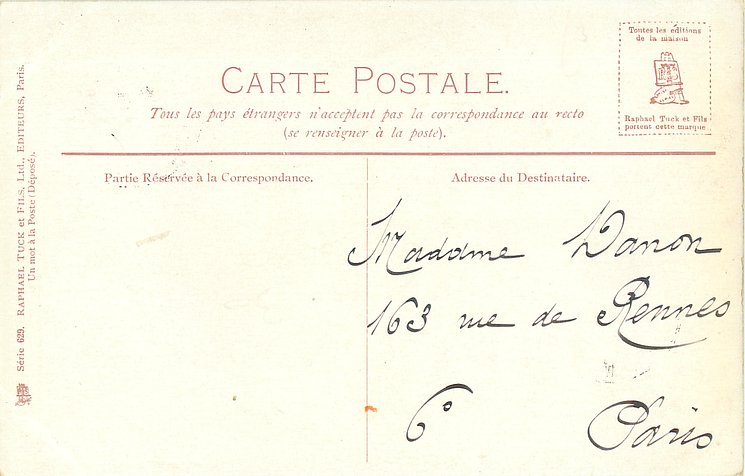 Toutes les éditions
de la maison
Raphael Tuck et Fils
portent cette marque.
CARTE POSTALE.
Tous les pays étrangers n'acceptent pas la correspondance au recto
(se renseigner à la poste).
Partie Réservée à la Correspondance.
Adresse du Destinataire.
Madame Danon
163 rue de Rennes
6° Paris
Série 629. RAPHAEL TUCK et FILS, Ltd., EDITEURS, Paris.
Un mot à la Poste (Déposé).